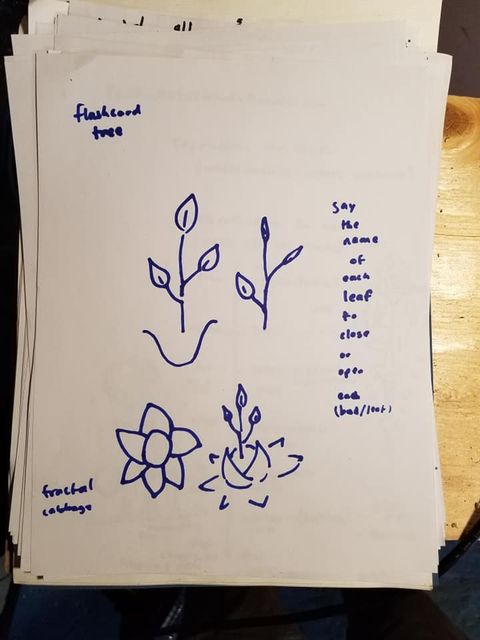 flashcard
tree
Say
the
name
of
each
leaf
to
close
or
open
each
(bud/leaf)
fractal
cabbage